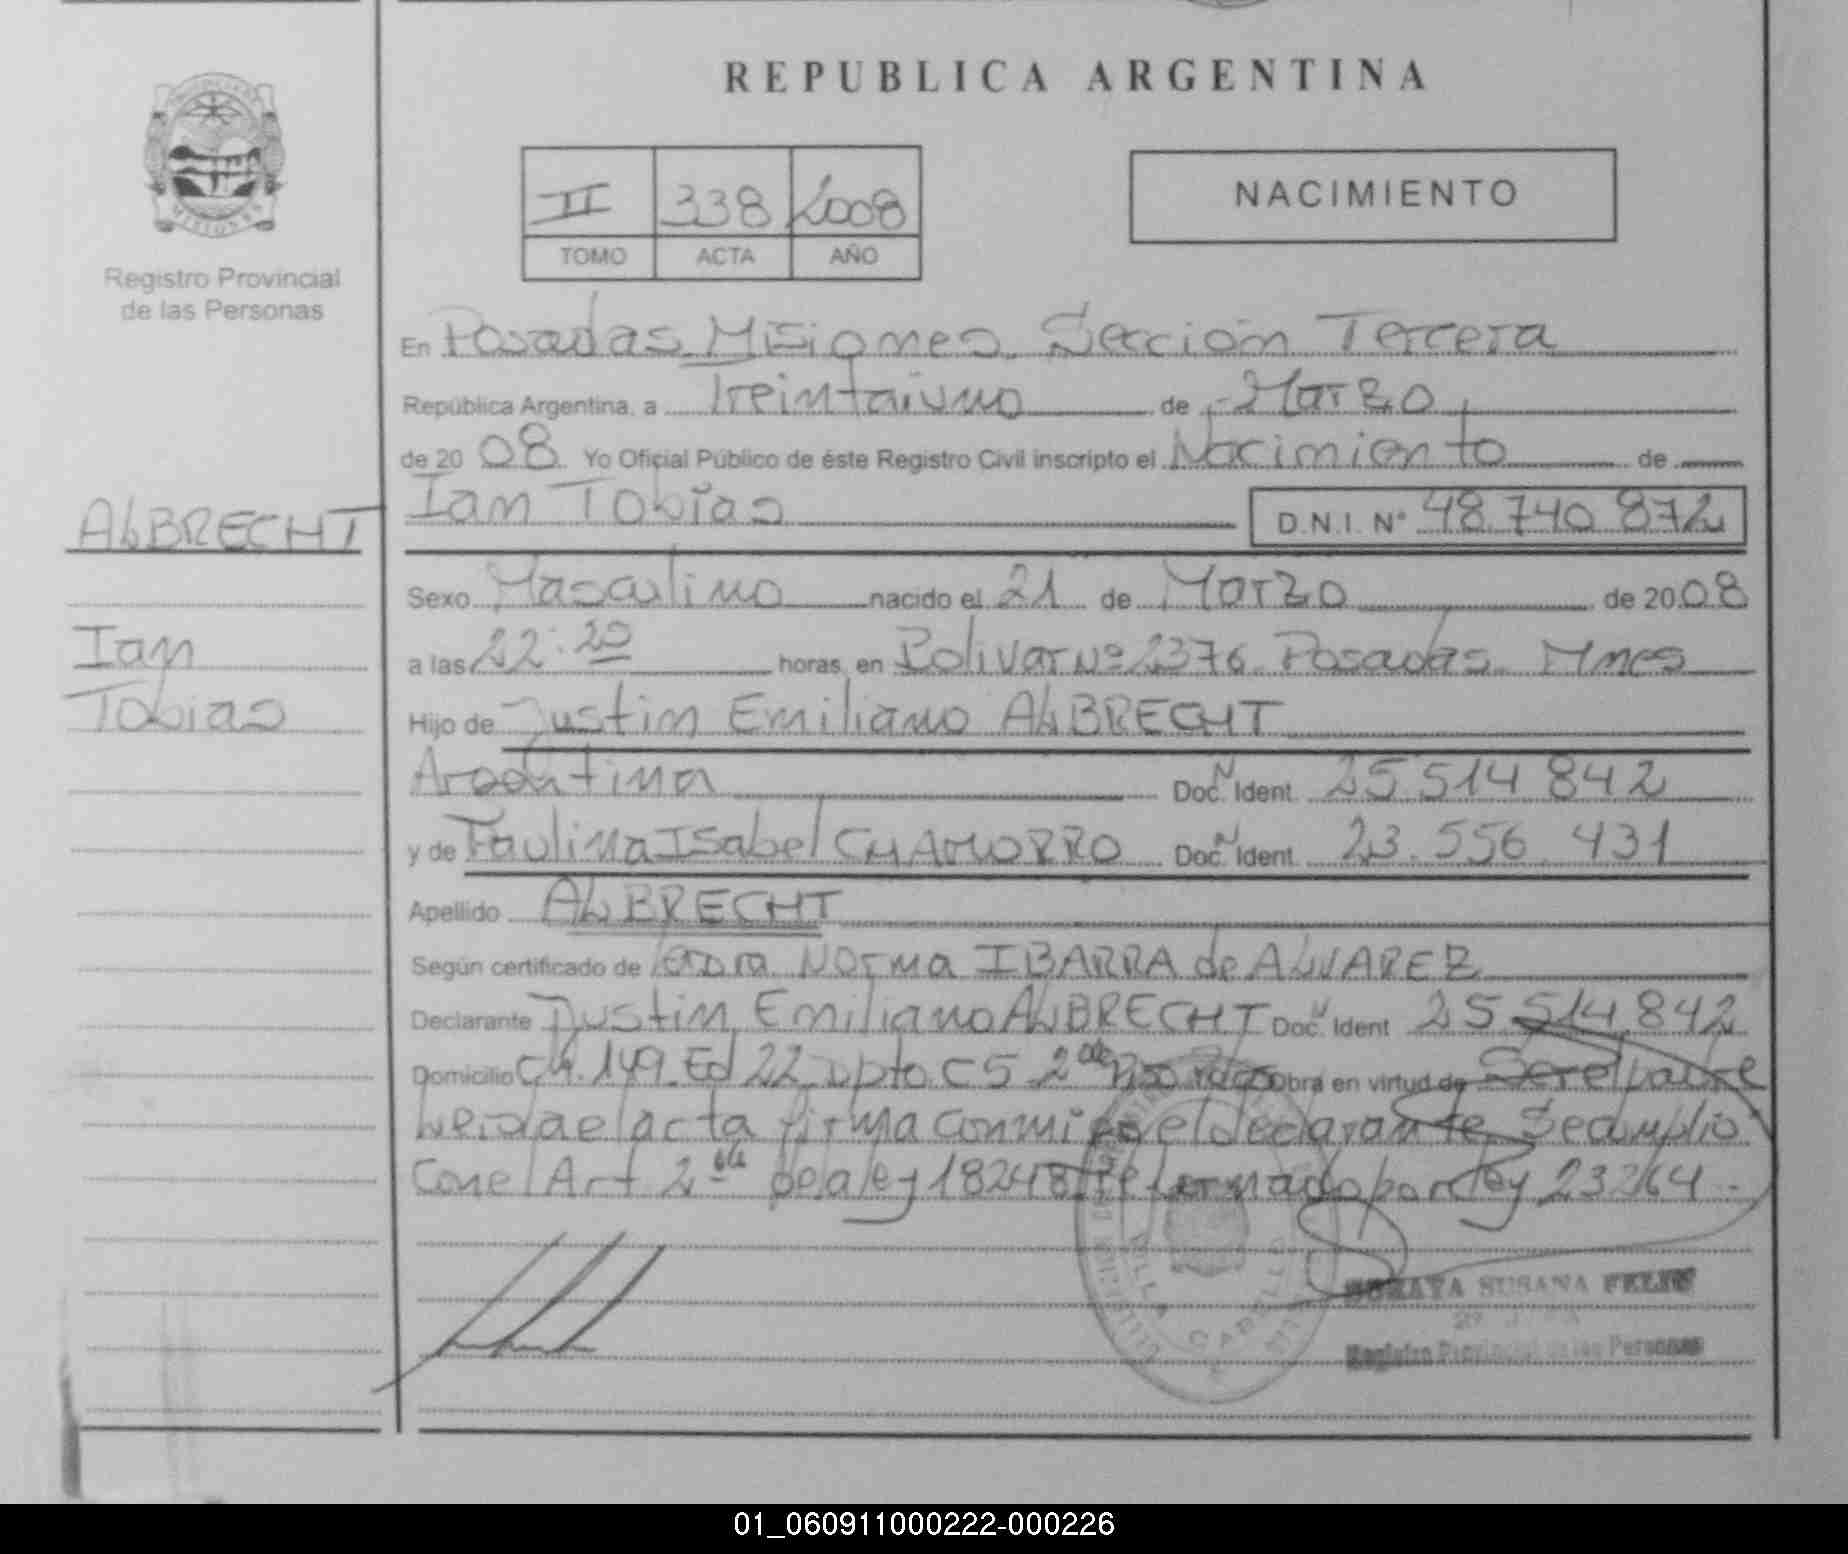 REPUBLICA ARGENTINA
II 338 2008
TOMO ACTA AÑO
NACIMIENTO
Registro Provincial
de las Personas
En Posadas Misiones Sección Tercera
República Argentina, a Treintaiuno de Marzo
de 20 08 Yo Oficial Público de éste Registro Civil inscripto el Nacimiento de
ALBRECHT
Ian Tobias D.N.I. Nº 48.740.872
Sexo Masculino nacido el 21 de Marzo de 20 08
Ian
a las 22:20 horas, en Bolivar Nº 2376 Posadas Mnes
Tobias
Hijo de Justin Emiliano ALBRECHT
Argentina Doc. Ident. 25 514 842
y de Paulina Isabel CHAMORRO Doc. Ident. 23.556.431
Apellido ALBRECHT
Según certificado de Norma IBARRA de ALVAREZ
Declarante Justin Emiliano ALBRECHT Doc. Ident 25 514 842
Domicilio Ch. 149 Ed 22 Dpto C5 2 Piso Obra en virtud de Ser el padre
Leida el acta firma conmigo el declarante Se cumplio
Con el Art 2 de la ley 18248 reformado por ley 23264.-
VILLA CABELLO
SUSANA
Registro Provincial de las Personas
01_060911000222-000226